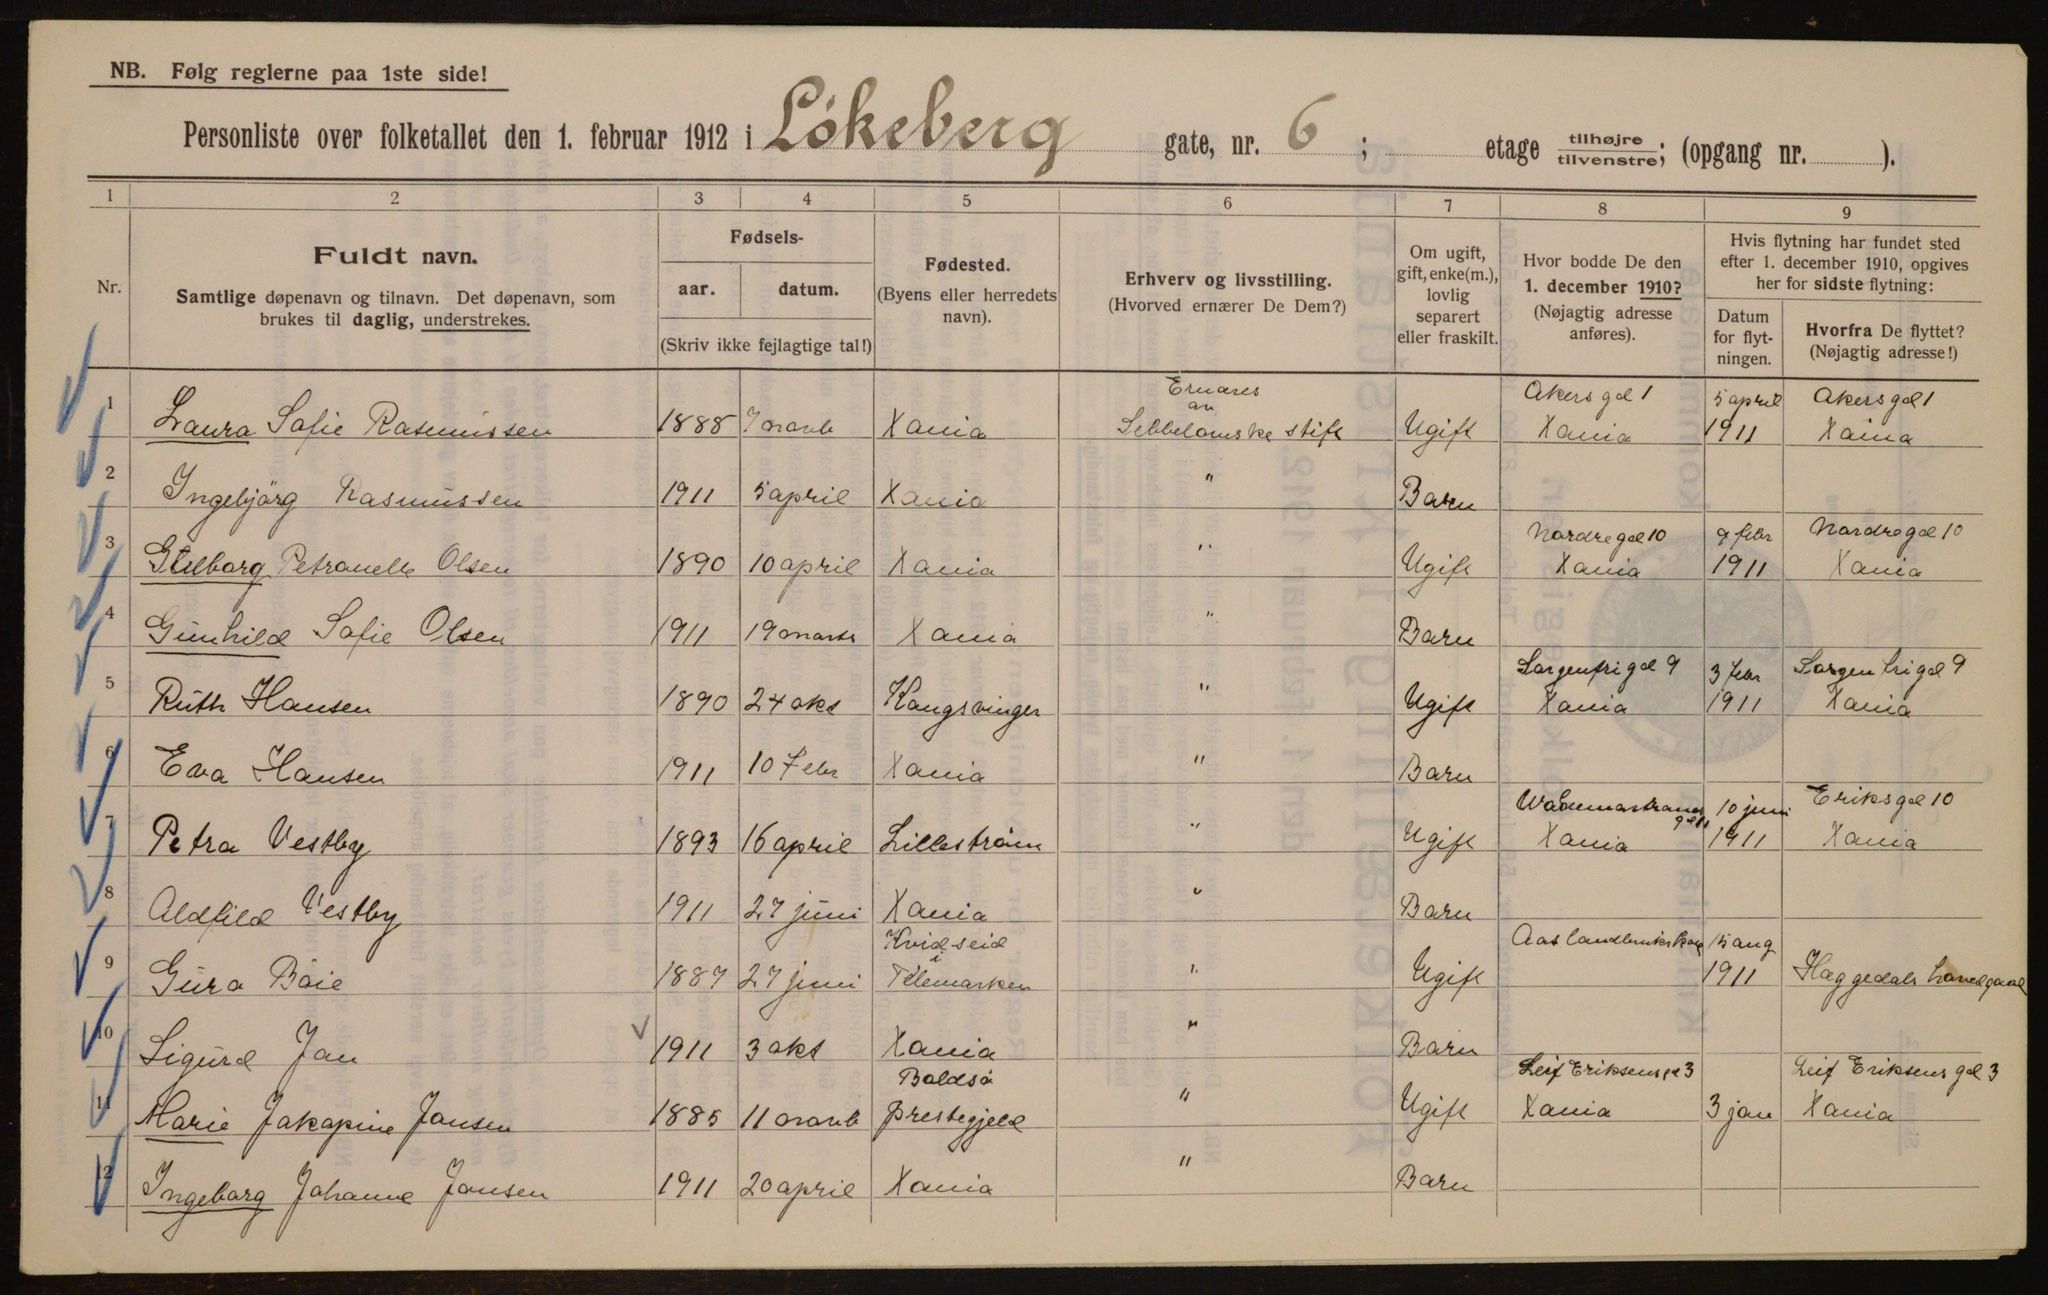 NB. Følg reglerne paa 1ste side!
Personliste over folketallet den 1. februar 1912 i Lökeberg gate, nr. 6; etage tilhøjre/tilvenstre; (opgang nr. ).
1 2 3 4 5 6 7 8 9
Nr.
Fuldt navn.
Samtlige døpenavn og tilnavn. Det døpenavn, som
brukes til daglig, understrekes.
Fødsels-
aar. datum.
(Skriv ikke fejlagtige tal!)
Fødested.
(Byens eller herredets
navn).
Erhverv og livsstilling.
(Hvorved ernærer De Dem?)
Om ugift,
gift, enke(m.),
lovlig
separert
eller fraskilt.
Hvor bodde De den
1. december 1910?
(Nøjagtig adresse
anføres).
Hvis flytning har fundet sted
efter 1. december 1910, opgives
her for sidste flytning:
Datum
for flyt-
ningen.
Hvorfra De flyttet?
(Nøjagtig adresse!)
Ernæres Akersgd 1 5 april Akersgd 1
an
1 Laura Sofie Rasmussen 1888 7 novb Xania stift Ugift Xania 1911 Xania
2 Ingebjörg Rasmussen 1911 5 april Xania " Barn
Nordregd 10 9 febr Nordregd 10
3 Petronelle Olsen 1890 10 april Xania " Ugift Xania 1911 Xania
4 Gunhild Sofie Olsen 1911 19 marts Xania " Barn
Sorgenfrigd 9 3 febr Sorgenfrigd 9
5 Ruth Hansen 1890 24 okt Kongsvinger " Ugift Xania 1911 Xania
6 Eva Hansen 1911 10 Febr Xania " Barn
10 juni Eriksgd 10
7 Petra Vestby 1893 16 april Lilleström " Ugift Xania 1911 Xania
8 Aldfild Vestby 1911 27 juni Xania " Barn
Kvidseid Aas landbrukskole 15 aug
i
9 Gura Böie 1887 27 juni Telemarken " Ugift 1911 Haggedals hovedgaard
10 Sigurd Jan 1911 3 okt Xania " Barn
Boldsö Leif Eriksensgd 3 Leif Eriksens gd 3
11 Marie Jakopine Jansen 1885 11 novb prestegjeld " Ugift Xania 3 jan Xania
12 Ingeborg Johanne Jansen 1911 20 april Xania " Barn